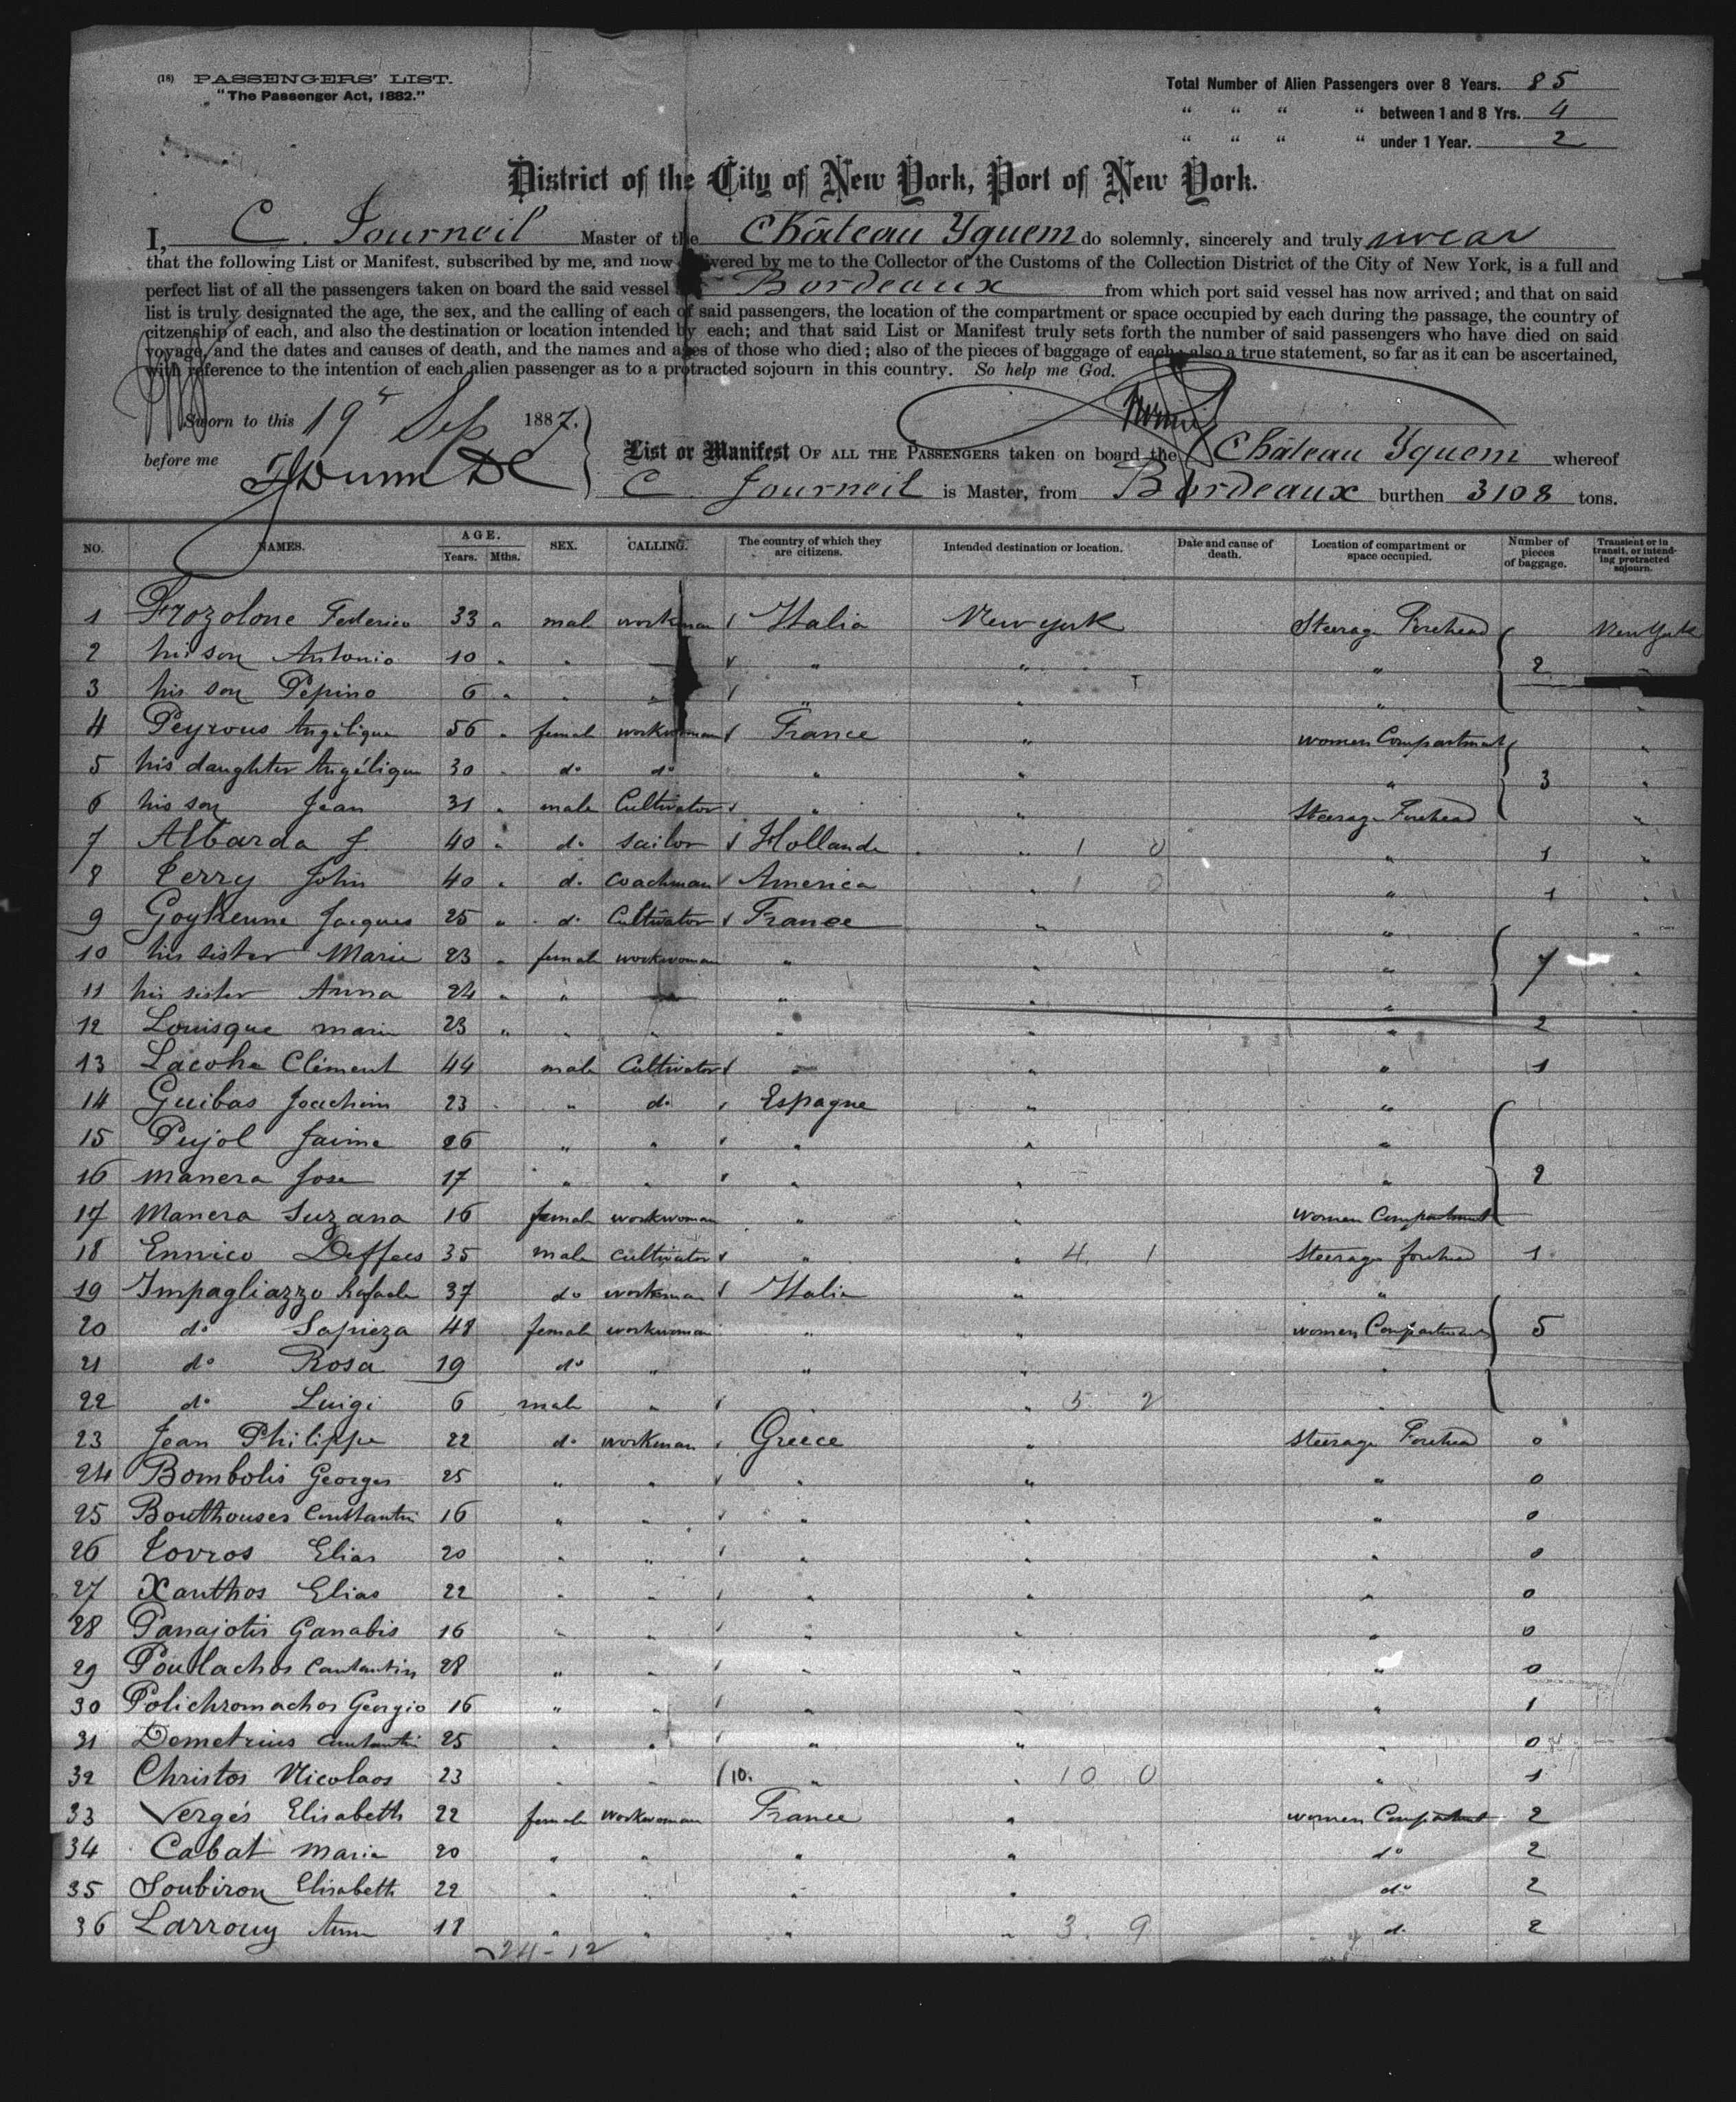 (18) PASSENGERS' LIST.
"The Passenger Act, 1882."
Total Number of Alien Passengers over 8 Years. 85
" " " " between 1 and 8 Yrs. 4
" " " " under 1 Year. 2
District of the City of New York, Port of New York.
I, C. Journeil Master of the Château Yquem do solemnly, sincerely and truly swear
that the following List or Manifest, subscribed by me, and now delivered by me to the Collector of the Customs of the Collection District of the City of New York, is a full and
perfect list of all the passengers taken on board the said vessel Bordeaux from which port said vessel has now arrived; and that on said
list is truly designated the age, the sex, and the calling of each of said passengers, the location of the compartment or space occupied by each during the passage, the country of
citzenship of each, and also the destination or location intended by each; and that said List or Manifest truly sets forth the number of said passengers who have died on said
voyage, and the dates and causes of death, and the names and ages of those who died; also of the pieces of baggage of each; also a true statement, so far as it can be ascertained,
with reference to the intention of each alien passenger as to a protracted sojourn in this country. So help me God.
Sworn to this 19 Sep 1887.
before me
List or Manifest OF ALL THE PASSENGERS taken on board the Château Yquem whereof
C Journeil is Master, from Bordeaux burthen 3108 tons.
NO. NAMES. AGE. Years. Mths. SEX. CALLING. The country of which they are citizens. Intended destination or location. Date and cause of death. Location of compartment or space occupied. Number of pieces of baggage. Transient or in transit, or intending protracted sojourn.
1 Frozolone Federico 33 " male workman Italia New york Steerage Forehead New York
2 his son Antonio 10 " " " " " " 2 "
3 his son Pepino 6 " " " " " " "
4 Peyrous Angélique 56 " female workwoman France " women Compartment "
5 his daughter Angélique 30 " do do " " " 3 "
6 his son Jean 31 " male Cultivator " " Steerage Forehead "
7 Albarda J 40 " do sailor Hollande " 1 0 " 1 "
8 Terry John 40 " do coachman America " 1 0 " 1 "
9 Goyheune Jacques 25 " do Cultivator France " " "
10 his sister Marie 23 " female workwoman " " " 7 "
11 his sister Anna 24 " " " " " " "
12 Louisque marie 23 " " " " " " 2
13 Lacoha Clément 44 male Cultivator " " " 1
14 Guibas Joachim 23 " do Espagne " "
15 Pujol Jaime 26 " " " " "
16 Manera Jose 17 " " " " " 2
17 Manera Suzana 16 female workwoman " " women Compartment
18 Ennico Deffees 35 male cultivator " " 4 1 Steerage forehead 1
19 Impagliazzo Rafaele 37 do workman Italia " "
20 do Sapieza 48 female workwoman " " women Compartment 5
21 do Rosa 19 do " " " "
22 do Luigi 6 male " " " 5 2 "
23 Jean Philippe 22 do workman Greece " Steerage Forehead 0
24 Bombolis Georges 25 " " " " " 0
25 Bouthouses Constantin 16 " " " " " 0
26 Tovros Elias 20 " " " " " 0
27 Xanthos Elias 22 " " " " " 0
28 Panajotis Ganabis 16 " " " " " 0
29 Poulachos Constantin 28 " " " " " 0
30 Polichromachos Georgio 16 " " " " " 1
31 Demetrius Constantin 25 " " " " " 0
32 Christos Nicolaos 23 " " 10. " " 10 0 " 1
33 Vergés Elisabeth 22 female workwoman France " women Compartment 2
34 Cabat Maria 20 " " " " do 2
35 Soubiron Elisabeth 22 " " " " do 2
36 Larrouy Anna 18 " " " " 3. 9 do 2
24-12